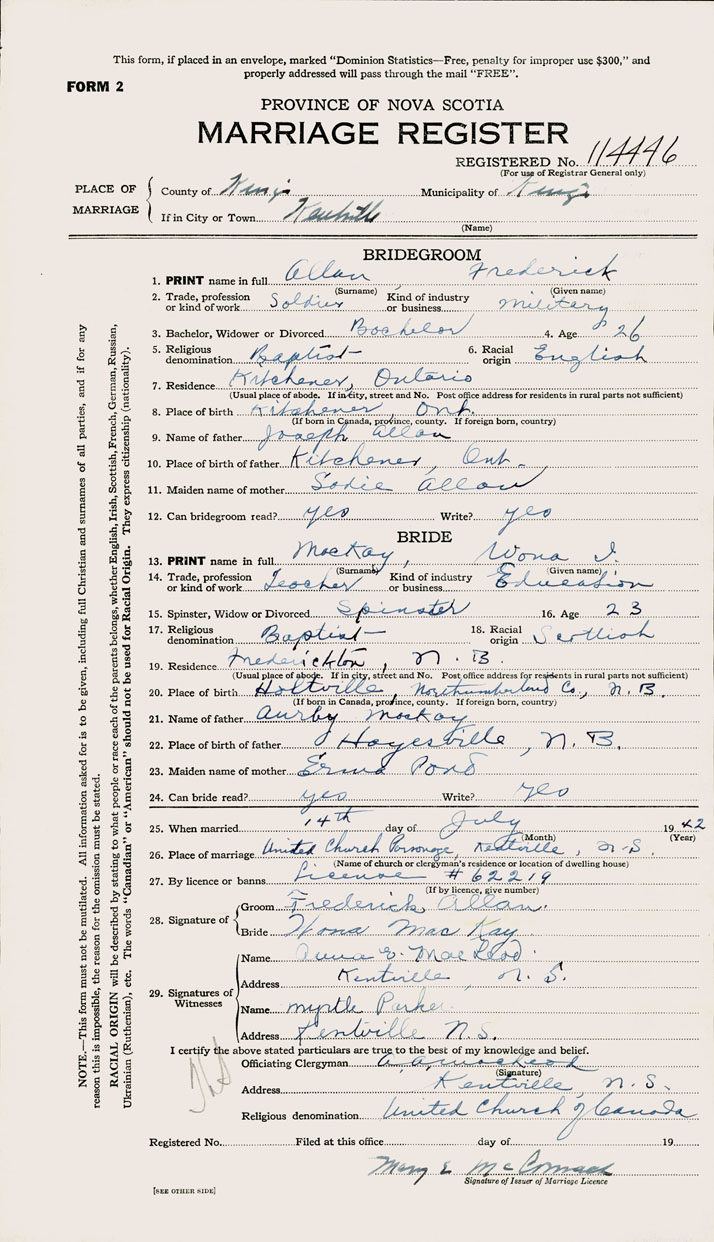 This form, if placed in an envelope, marked "Dominion Statistics—Free, penalty for improper use $300," and
properly addressed will pass through the mail "FREE".
FORM 2
PROVINCE OF NOVA SCOTIA
MARRIAGE REGISTER
REGISTERED No. 114446
(For use of Registrar General only)
PLACE OF MARRIAGE
County of Kings Municipality of Kings
If in City or Town Kentville
(Name)
BRIDEGROOM
1. PRINT name in full Allan, Frederick
(Surname) (Given name)
2. Trade, profession or kind of work Soldier Kind of industry or business Military
3. Bachelor, Widower or Divorced Bachelor 4. Age 26
5. Religious denomination Baptist 6. Racial origin English
7. Residence Kitchener, Ontario
(Usual place of abode. If in city, street and No. Post office address for residents in rural parts not sufficient)
8. Place of birth Kitchener Ont.
(If born in Canada, province, county. If foreign born, country)
9. Name of father Joseph Allan
10. Place of birth of father Kitchener, Ont.
11. Maiden name of mother Sadie Allan
12. Can bridegroom read? yes Write? yes
BRIDE
13. PRINT name in full MacKay, Wona I.
(Surname) (Given name)
14. Trade, profession or kind of work Teacher Kind of industry or business Education
15. Spinster, Widow or Divorced Spinster 16. Age 23
17. Religious denomination Baptist 18. Racial origin Scottish
19. Residence Frederickton, N.B.
(Usual place of abode. If in city, street and No. Post office address for residents in rural parts not sufficient)
20. Place of birth Holtville, Northumberland Co., N.B.
(If born in Canada, province, county. If foreign born, country)
21. Name of father Aurby MacKay
22. Place of birth of father Hayesville, N.B.
23. Maiden name of mother Erma Pond
24. Can bride read? yes Write? yes
25. When married 14th day of July 1942
(Month) (Year)
26. Place of marriage United Church Parsonage, Kentville, N.S.
(Name of church or clergyman's residence or location of dwelling house)
27. By licence or banns License # 62219
(If by licence, give number)
28. Signature of
Groom Frederick Allan.
Bride Wona MacKay.
29. Signatures of Witnesses
Name Anna E. MacLeod.
Address Kentville, N.S.
Name Myrtle Parker.
Address Kentville N.S.
I certify the above stated particulars are true to the best of my knowledge and belief.
Officiating Clergyman A. A. MacLeod
(Signature)
Address Kentville, N.S.
Religious denomination United Church of Canada
Registered No. Filed at this office day of 19
Mary E McCormack
Signature of Issuer of Marriage Licence
[SEE OTHER SIDE]
NOTE.—This form must not be mutilated. All information asked for is to be given, including full Christian and surnames of all parties, and if for any
reason this is impossible, the reason for the omission must be stated.
RACIAL ORIGIN will be described by stating to what people or race each of the parents belongs, whether English, Irish, Scottish, French, German, Russian,
Ukrainian (Ruthenian), etc. The words "Canadian" or "American" should not be used for Racial Origin. They express citizenship (nationality).